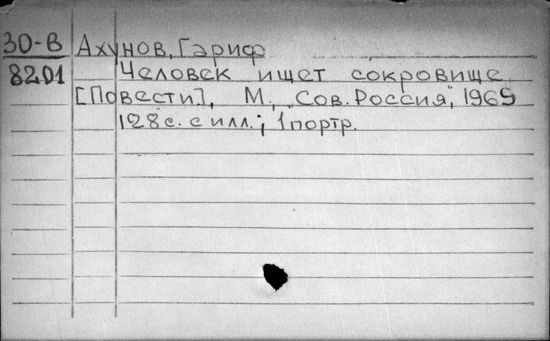 30-В Ахунов, Гариф
8201 Человек ищет сокровище
[Повести], М., „Сов. Россия", 1965
128 с. с илл.; 1 портр.